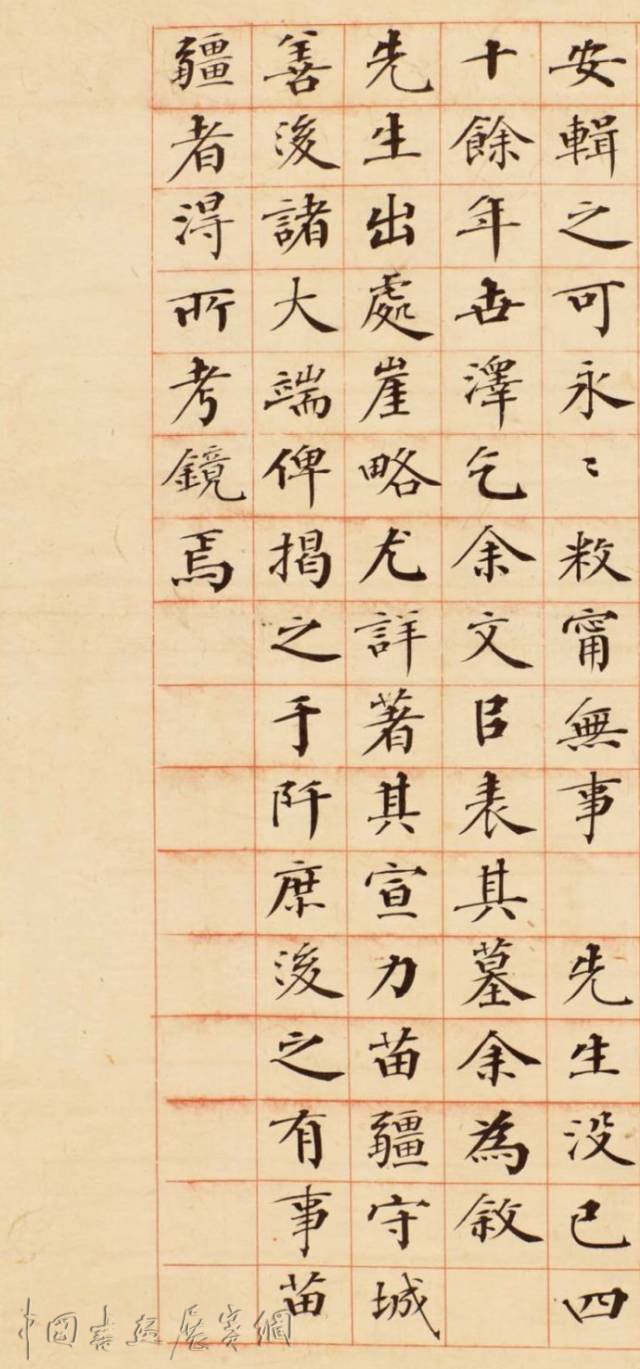 安輯之可永〻敉甯無事 先生没已四
十餘年世澤乞余文㠯表其墓余為敘
先生出處崖略尤詳著其宣力苗疆守城
善後諸大端俾揭之于阡庶後之有事苗
疆者得所考鏡焉
中国书画展赛網